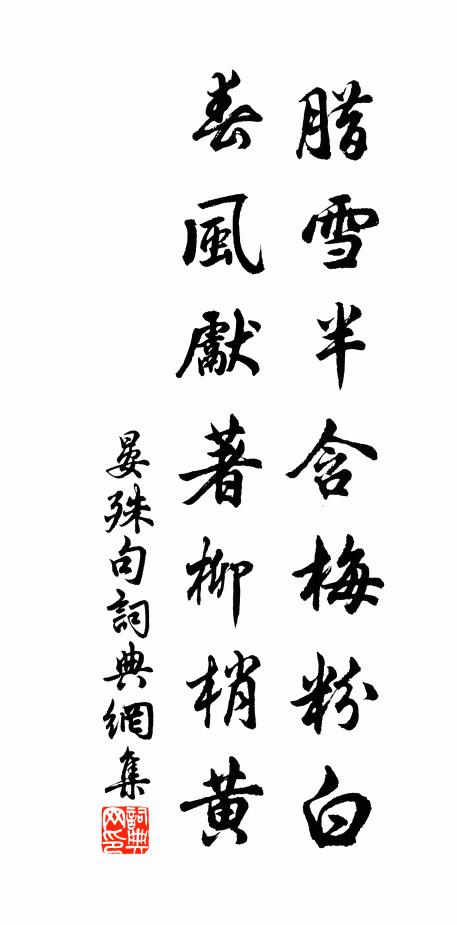 腊雪半含梅粉白
春風獻著柳梢黃
晏殊句詞典網集
詞典网印